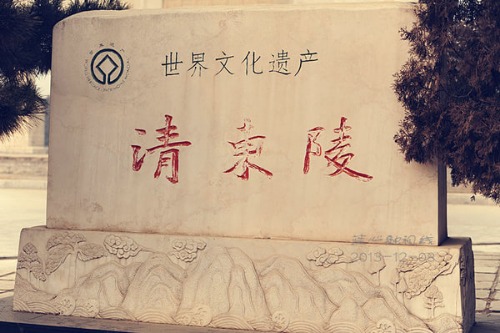 世界文化遗产
清东陵
2013-12-08